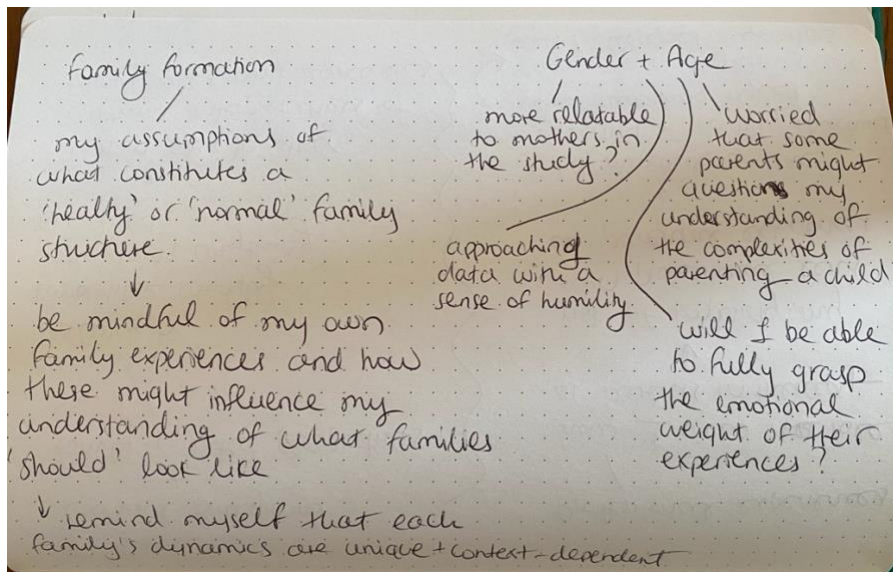 Family formation
my assumptions of
what constitutes a
'healty' or 'normal' family
structure.
be mindful of my own
family experiences and how
these might influence my
understanding of what families
'should' look like
remind myself that each
family's dynamics are unique + context-dependent
Gender + Age
more relatable
to mothers in
the study?
approaching
data with a
sense of humility
worried
that some
parents might
question my
understanding of
the complexities of
parenting a child
will I be able
to fully grasp
the emotional
weight of their
experiences?